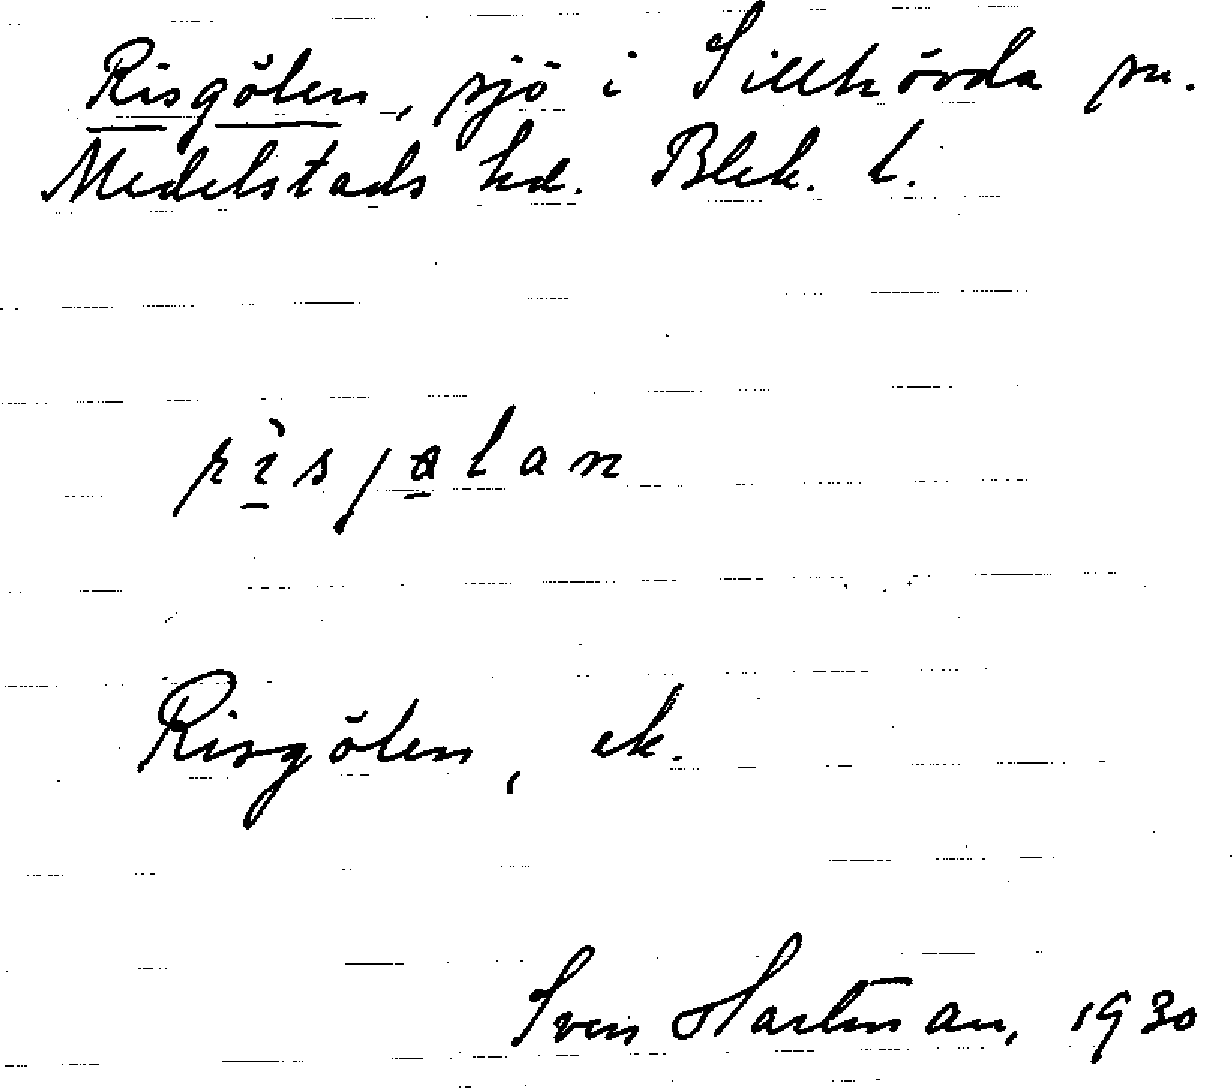 Risgölen, sjö i Sillhövda sn.
Medelstads hd. Blek. l.
Risgölen, ek.
Sven Hartman, 1930